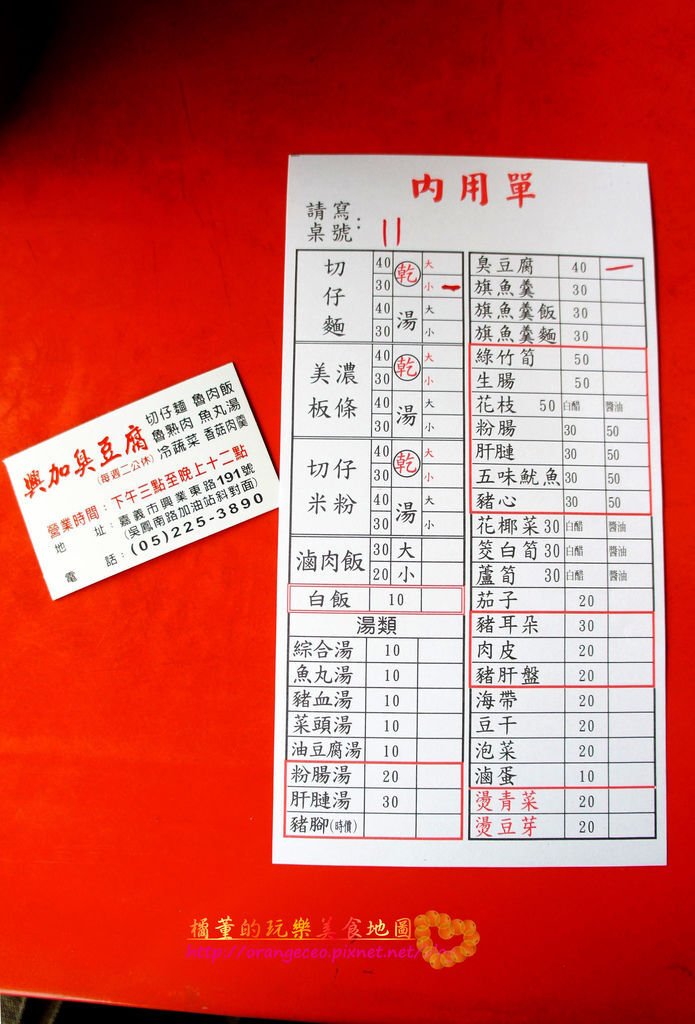 內用單
請寫
桌號：11
切仔麵 40 乾 大
30 小 一
40 湯 大
30 小
美濃板條 40 乾 大
30 小
40 湯 大
30 小
切仔米粉 40 乾 大
30 小
40 湯 大
30 小
滷肉飯 30 大
20 小
白飯 10
湯類
綜合湯 10
魚丸湯 10
豬血湯 10
菜頭湯 10
油豆腐湯 10
粉腸湯 20
肝腱湯 30
豬腳(時價)
臭豆腐 40 一
旗魚羹 30
旗魚羹飯 30
旗魚羹麵 30
綠竹筍 50
生腸 50
花枝 50 白醋 醬油
粉腸 30 50
肝腱 30 50
五味魷魚 30 50
豬心 30 50
花椰菜 30 白醋 醬油
筊白筍 30 白醋 醬油
蘆筍 30 白醋 醬油
茄子 20
豬耳朵 30
肉皮 20
豬肝盤 20
海帶 20
豆干 20
泡菜 20
滷蛋 10
燙青菜 20
燙豆芽 20
興加臭豆腐
(每週二公休)
切仔麵 魯肉飯
魯熟肉 魚丸湯
冷蔬菜 香菇肉羹
營業時間：下午三點至晚上十二點
地 址：嘉義市興業東路191號
(吳鳳南路加油站斜對面)
電 話：(05)225-3890
橘董的玩樂美食地圖
http://orangeceo.pixnet.net/